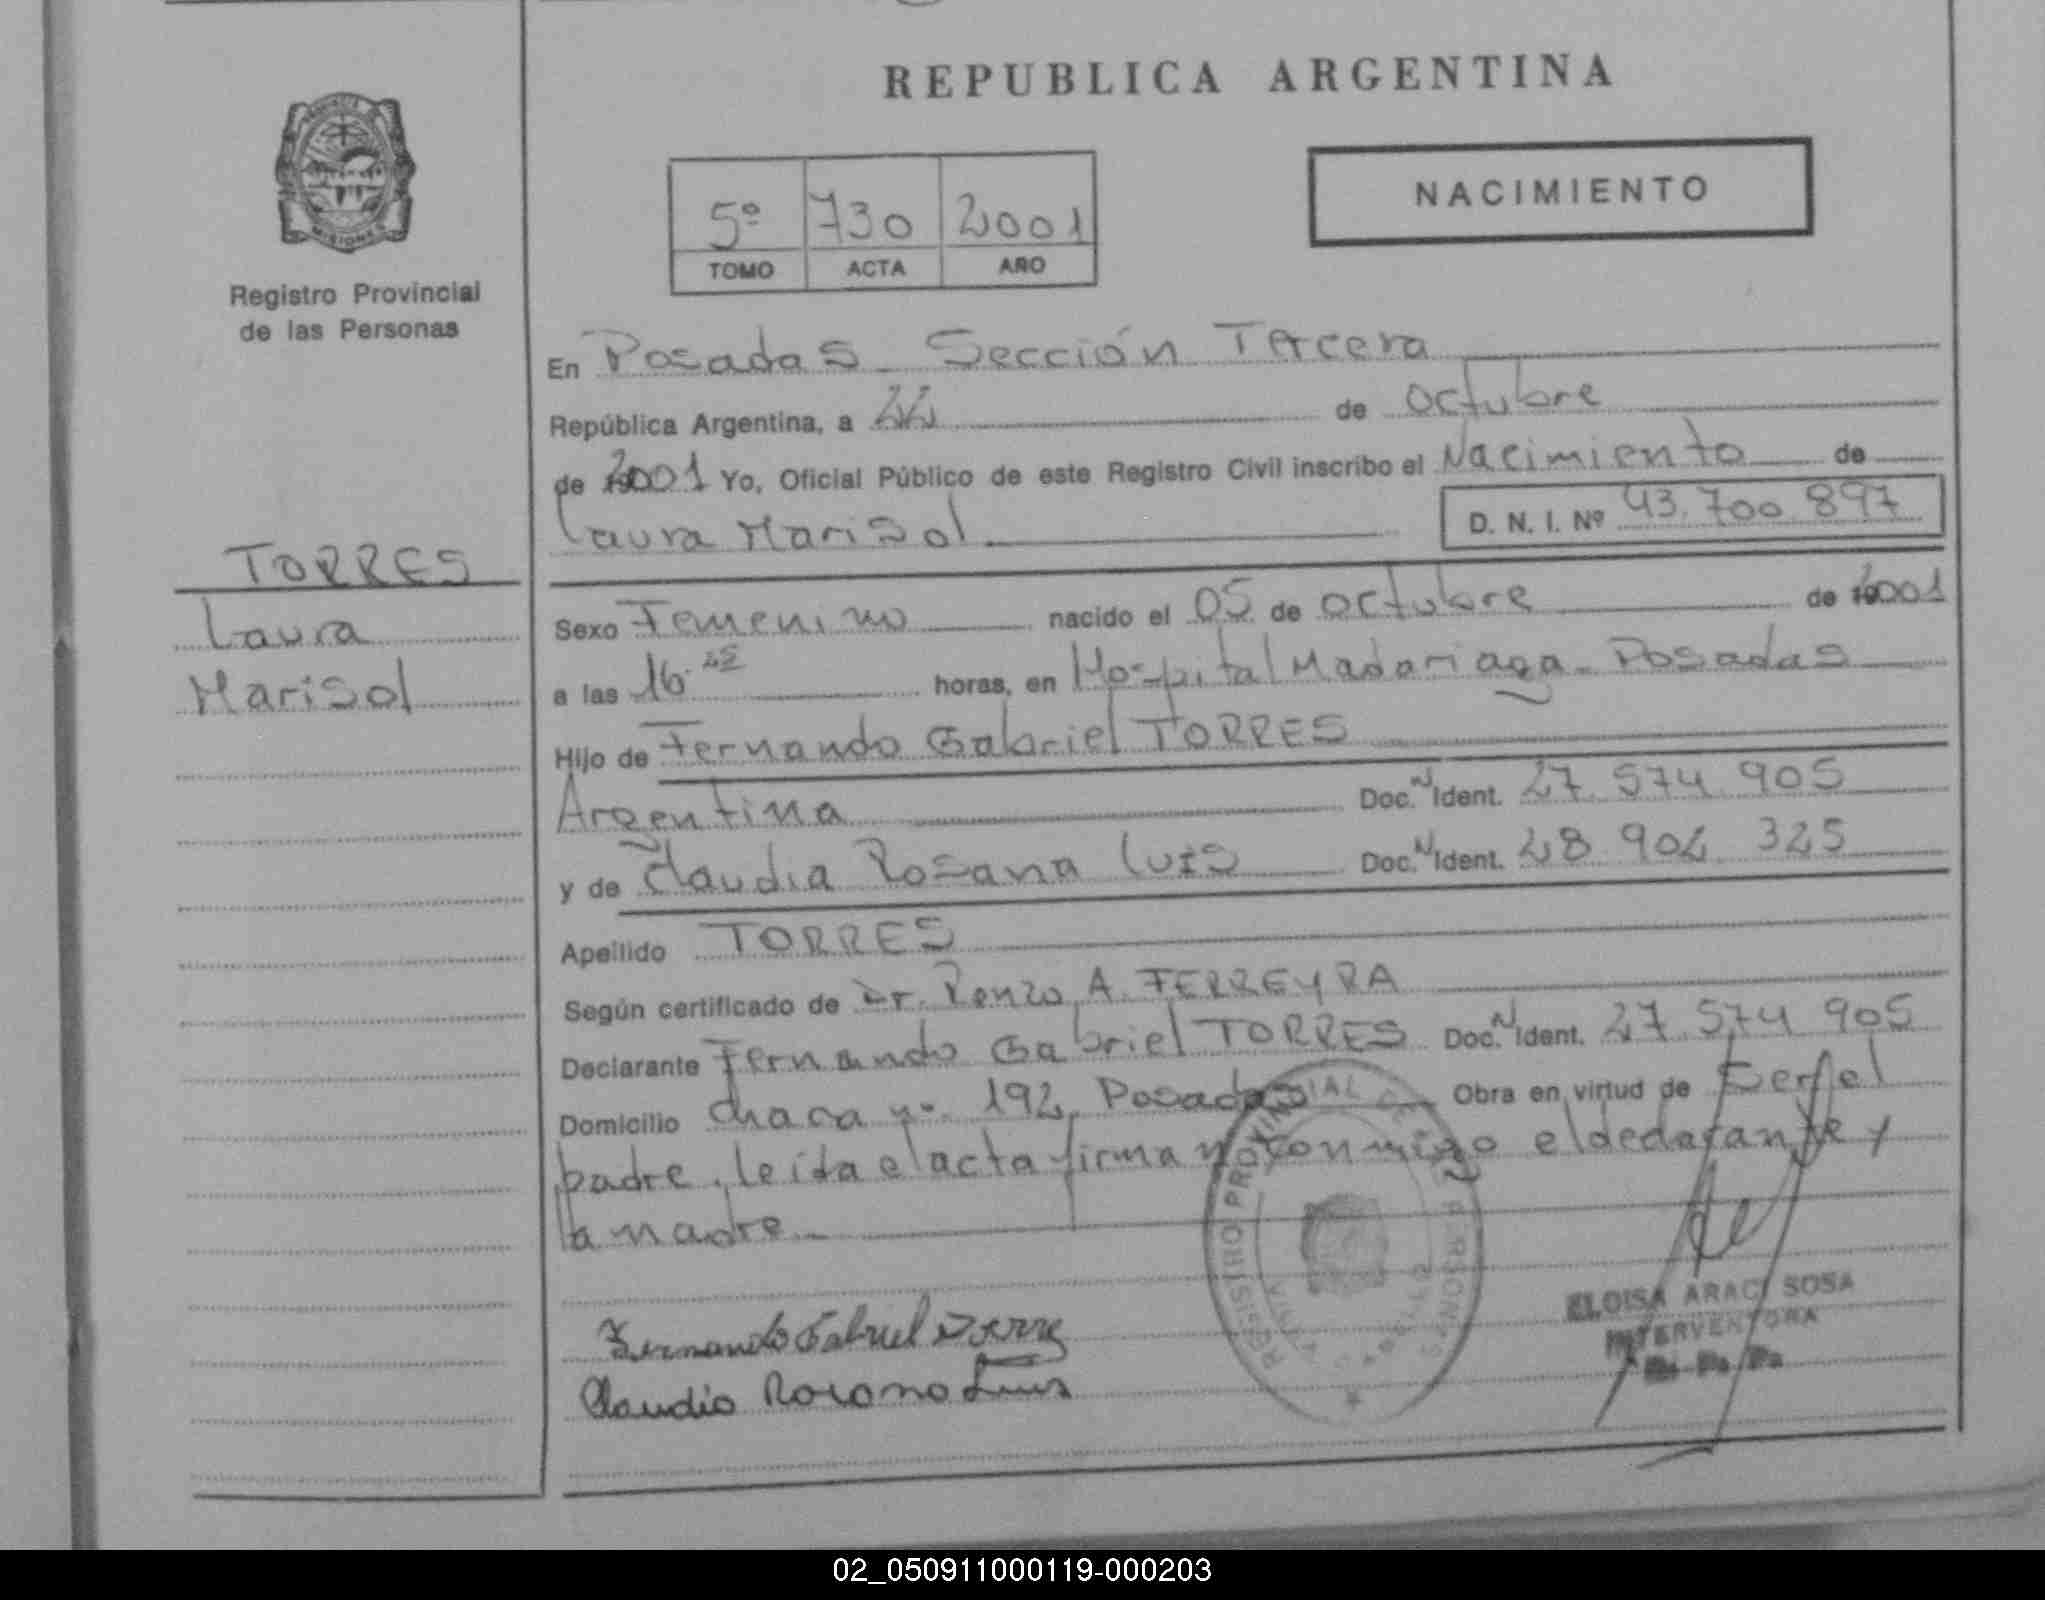 REPUBLICA ARGENTINA
NACIMIENTO
5º 730 2001
TOMO ACTA AÑO
MISIONES
Registro Provincial
de las Personas
TORRES
Laura
Marisol
En Posadas Sección Tercera
República Argentina, a 22 de octubre
de 2001 Yo, Oficial Público de este Registro Civil inscribo el Nacimiento de
Laura Marisol D. N. I. Nº 43.700.897
Sexo Femenino nacido el 05 de octubre de 2001
a las 16 horas, en Hospital Madariaga - Posadas
Hijo de Fernando Gabriel TORRES
Argentina Doc. N Ident. 27.574.905
y de Claudia Rosana Luis Doc. N Ident. 28.902.325
Apellido TORRES
Según certificado de Dr. Renzo A. FERREYRA
Declarante Fernando Gabriel TORRES Doc. N Ident. 27.574.905
Domicilio Chacra nº 192, Posadas Obra en virtud de ser el
padre, leída el acta firma conmigo el declarante y
la madre
Fernando Gabriel Torres
Claudia Rosana Luis
REGISTRO PROVINCIAL DE PERSONAS
ELOISA ARACI SOSA
INTERVENTORA
02_050911000119-000203